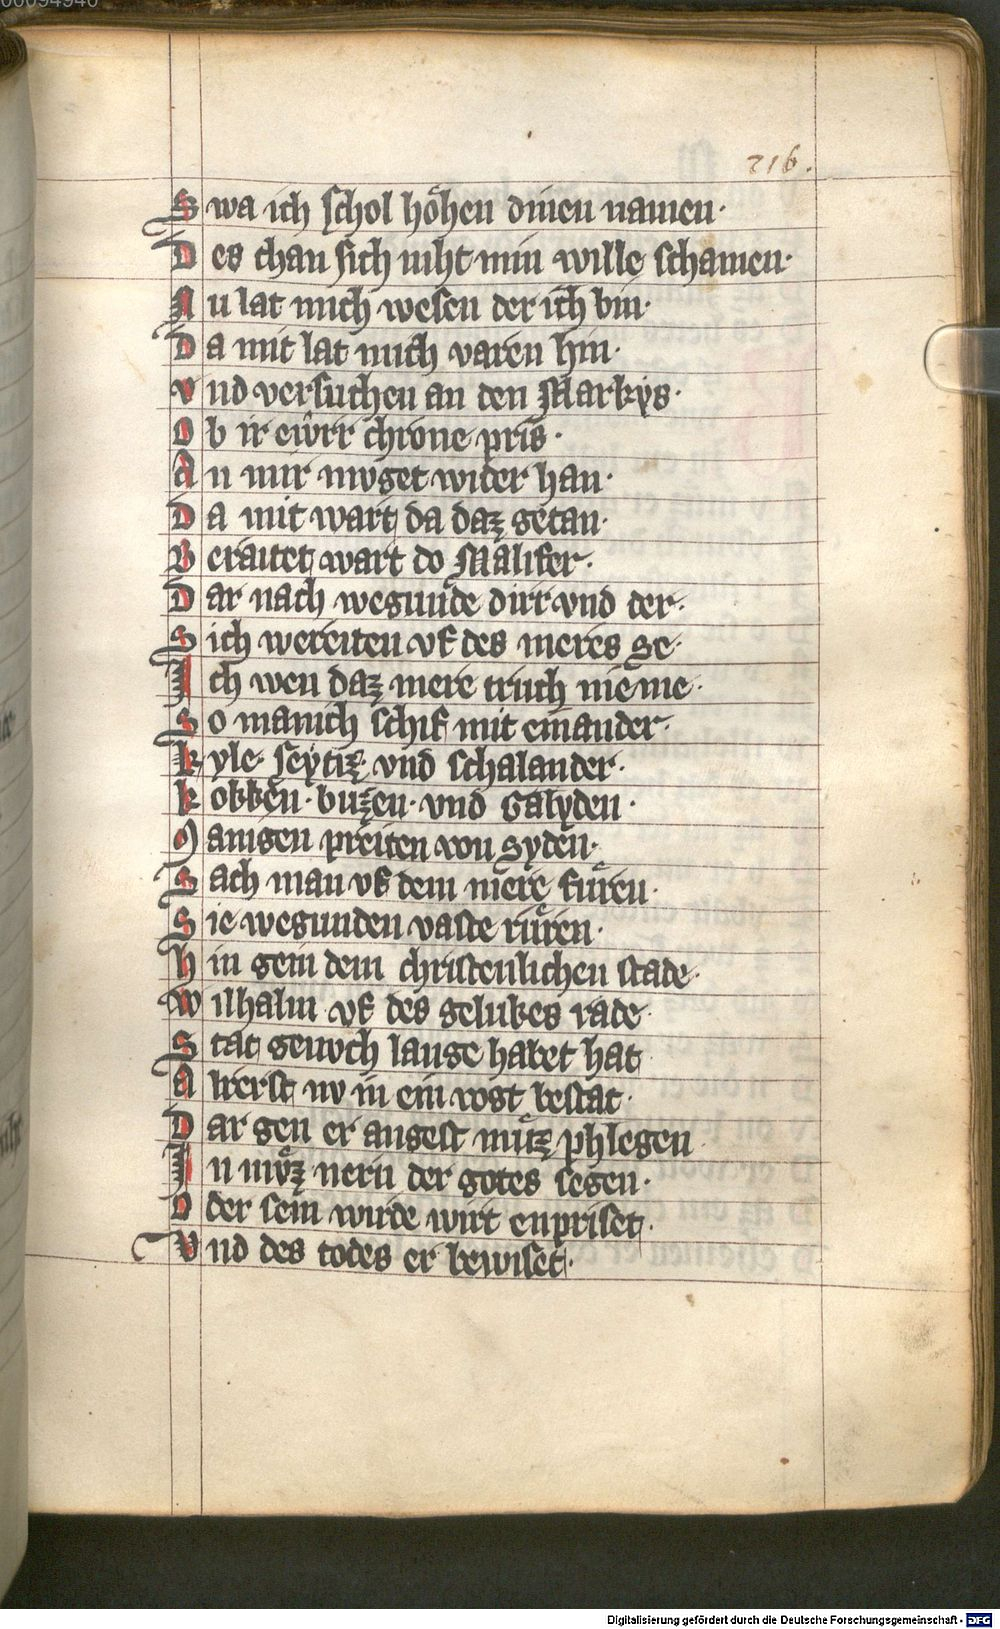 00094940
216.
S wa ich schol hoͤhen dinen namen·
D es chan sich niht min wille schamen·
N u lat mich wesen der ich bin·
D a mit lat mich varen hin·
v nd versuchen an den Markys·
O b ir ewrr chrone pris·
A n mir mvget wider han·
D a mit wart da daz getan·
B eraitet wart do Malifer·
D ar nach wegunde dirr vnd der·
S ich wereiten vf des meres se·
I ch wen daz mere truch nie me·
S o manich schif mit einander·
k yle· seytiz· vnd schalander·
k obken· buzen· vnd galyden·
M anigen preiten von syden·
S ach man vf dem mere fuͤren·
S ie wegunden vaste ruͤren·
h in gein dem christenlichen stade·
W ilhalm vf des gelubes rade·
S tat genvch lange habet hat
A llerst nv in ein rost bestat·
D ar gen er angest muͤz phlegen
I n mvͤz nern der gotes segen·
O der sein wirde wirt enpriset·
V nd des todes er bewiset·
Digitalisierung gefördert durch die Deutsche Forschungsgemeinschaft - DFG